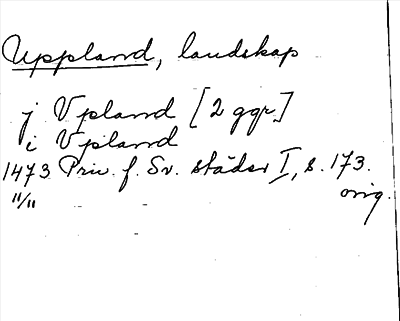 Uppland, landskap
j Vpland [2 ggr.]
i Vpland
1473 Priv. f. Sv. städer I, s. 173.
11/11 orig.